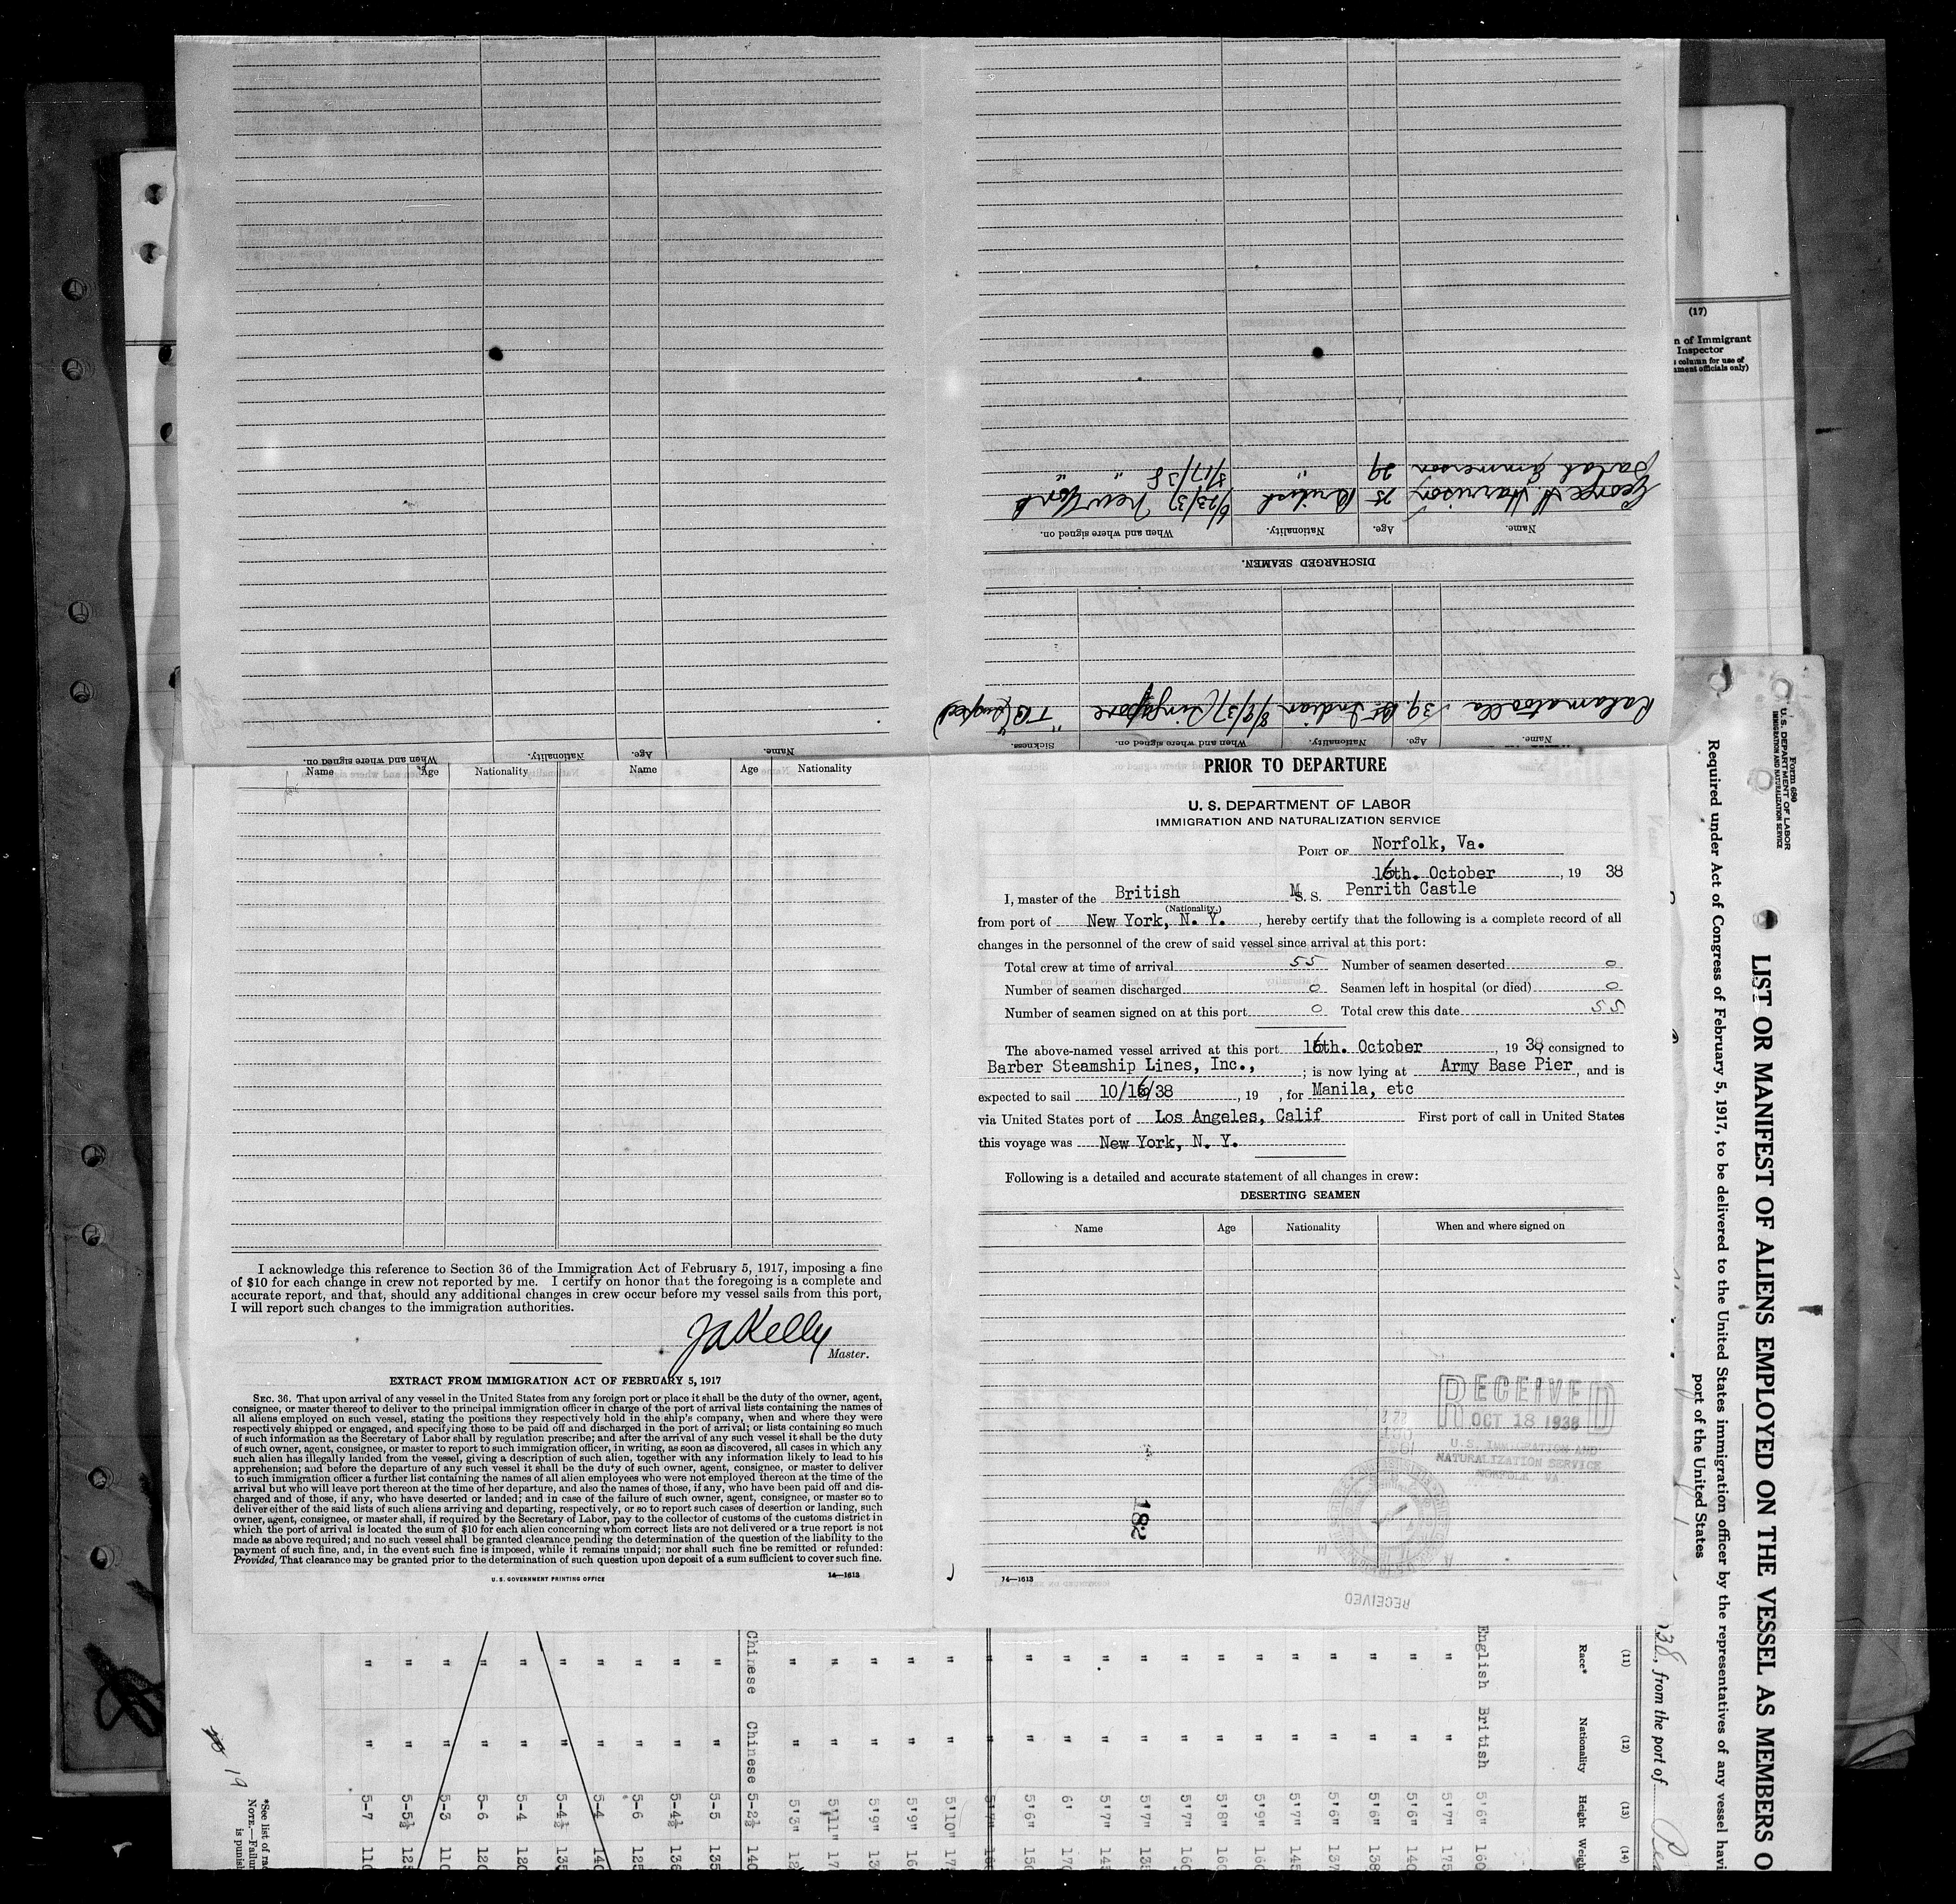 (17)
n of Immigrant
Inspector
column for use of
ment officials only)
Name. Age. Nationality. When and where signed on.
DISCHARGED SEAMEN.
Name. Age. Nationality. When and where signed on.
George H Harrison 25 British 6/23/37 New York
Sarah Emmerson 29 " 8/17/38 "
Name. Age. Nationality. When and where signed on. Sickness.
39 Br Indian 8/9/37 Singapore
Name Age Nationality Name Age Nationality
I acknowledge this reference to Section 36 of the Immigration Act of February 5, 1917, imposing a fine
of $10 for each change in crew not reported by me. I certify on honor that the foregoing is a complete and
accurate report, and that, should any additional changes in crew occur before my vessel sails from this port,
I will report such changes to the immigration authorities.
JA Kelly
Master.
EXTRACT FROM IMMIGRATION ACT OF FEBRUARY 5, 1917
SEC. 36. That upon arrival of any vessel in the United States from any foreign port or place it shall be the duty of the owner, agent,
consignee, or master thereof to deliver to the principal immigration officer in charge of the port of arrival lists containing the names of
all aliens employed on such vessel, stating the positions they respectively hold in the ship's company, when and where they were
respectively shipped or engaged, and specifying those to be paid off and discharged in the port of arrival; or lists containing so much
of such information as the Secretary of Labor shall by regulation prescribe; and after the arrival of any such vessel it shall be the duty
of such owner, agent, consignee, or master to report to such immigration officer, in writing, as soon as discovered, all cases in which any
such alien has illegally landed from the vessel, giving a description of such alien, together with any information likely to lead to his
apprehension; and before the departure of any such vessel it shall be the duty of such owner, agent, consignee, or master to deliver
to such immigration officer a further list containing the names of all alien employees who were not employed thereon at the time of the
arrival but who will leave port thereon at the time of her departure, and also the names of those, if any, who have been paid off and dis-
charged and of those, if any, who have deserted or landed; and in case of the failure of such owner, agent, consignee, or master so to
deliver either of the said lists of such aliens arriving and departing, respectively, or so to report such cases of desertion or landing, such
owner, agent, consignee, or master shall, if required by the Secretary of Labor, pay to the collector of customs of the customs district in
which the port of arrival is located the sum of $10 for each alien concerning whom correct lists are not delivered or a true report is not
made as above required; and no such vessel shall be granted clearance pending the determination of the question of the liability to the
payment of such fine, and, in the event such fine is imposed, while it remains unpaid; nor shall such fine be remitted or refunded:
Provided, That clearance may be granted prior to the determination of such question upon deposit of a sum sufficient to cover such fine.
U. S. GOVERNMENT PRINTING OFFICE 14—1613
PRIOR TO DEPARTURE
U. S. DEPARTMENT OF LABOR
IMMIGRATION AND NATURALIZATION SERVICE
PORT OF Norfolk, Va.
16th. October, 19 38
I, master of the British M S. S. Penrith Castle
(Nationality.)
from port of New York, N. Y., hereby certify that the following is a complete record of all
changes in the personnel of the crew of said vessel since arrival at this port:
Total crew at time of arrival 55 Number of seamen deserted 0
Number of seamen discharged 0 Seamen left in hospital (or died) 0
Number of seamen signed on at this port 0 Total crew this date 55
The above-named vessel arrived at this port 16th. October, 19 38 consigned to
Barber Steamship Lines, Inc., ; is now lying at Army Base Pier, and is
expected to sail 10/16/38, 19 , for Manila, etc
via United States port of Los Angeles, Calif First port of call in United States
this voyage was New York, N. Y.
Following is a detailed and accurate statement of all changes in crew:
DESERTING SEAMEN
Name Age Nationality When and where signed on
RECEIVED
OCT 18 1938
U. S. IMMIGRATION AND
NATURALIZATION SERVICE
NORFOLK, VA.
182
14—1613
RECEIVED
Form 680
U. S. DEPARTMENT OF LABOR
IMMIGRATION AND NATURALIZATION SERVICE
LIST OR MANIFEST OF ALIENS EMPLOYED ON THE VESSEL AS MEMBERS O
Required under Act of Congress of February 5, 1917, to be delivered to the United States immigration officer by the representatives of any vessel havi
port of the United States
38, from the port of
(11) (12) (13) (14)
Race* Nationality Height Weigh
English British 5'6" 160
" " 5'7" 175
" " 5'6" 140
" " 5'6" 138
" " 5'6" 137
" " 5'7" 145
" " 5'9" 160
" " 5'8" 160
" " 5'7" 160
" " 5'7" 135
" " 5'7" 145
" " 6' 170
" " 5'6" 150
" " 5'7"
" " 5'10" 17
" " 5'9" 16
" " 5'9" 13
" " 5'11" 17
" " 5'3" 12
Chinese Chinese 5-2½ 140
" " 5-5 135
" " 5-4½ 136
" " 5-6 125
" " 5-4 140
" " 5-4½ 135
" " 5-4 120
" " 5-6 120
" " 5-3 110
" " 5-5½ 125
" " 5-7 110
*See list of ra
NOTE.—Failur
is punis
19